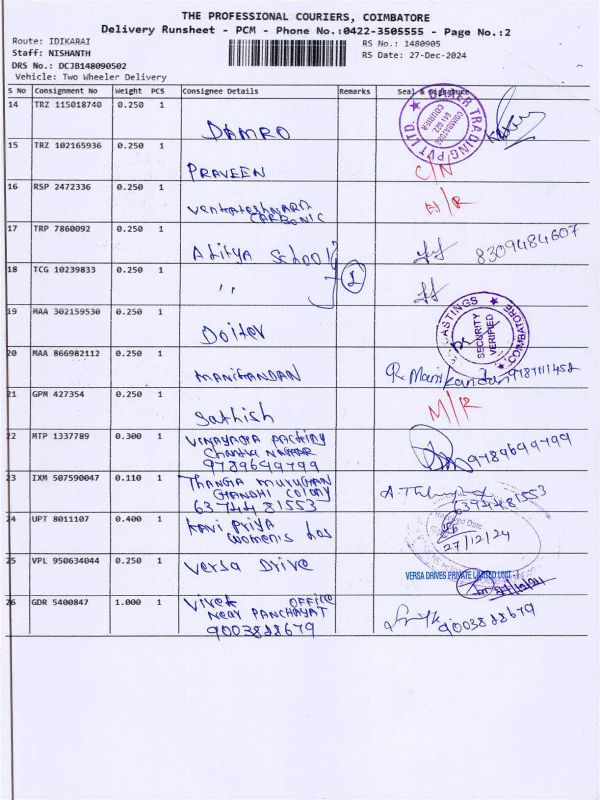 THE PROFESSIONAL COURIERS, COIMBATORE
Delivery Runsheet - PCM - Phone No.:0422-3505555 - Page No.:2
Route: IDIKARAI
RS No.: 1480905
Staff: NISHANTH
RS Date: 27-Dec-2024
DRS No.: DCJB148090502
Vehicle: Two Wheeler Delivery
S No Consignment No Weight PCS Consignee Details Remarks Seal & Signature
14 TRZ 115018740 0.250 1
DAMRO
TRADING PVT LTD.
COIMBATORE
641 022
COURIER
15 TRZ 102165936 0.250 1
PRAVEEN C/N
16 RSP 2472336 0.250 1
CARBONIC
17 TRP 7860092 0.250 1
Aditya School 8309484607
18 TCG 10239833 0.250 1
" 1
19 MAA 302159530 0.250 1
CASTINGS
SECURITY
VERIFIED
COIMBATORE
20 MAA 866982112 0.250 1
MANIKANDAN R. Manikandan
21 GPM 427354 0.250 1
Sathish
22 MTP 1337789 0.300 1
VINAYAGA PACKING
NAGAR
9789699799 9789699799
23 IXM 507590047 0.110 1
THANGA MURUGHAN
GANDHI COLONY
6374481553 6374481553
24 UPT 8011107 0.400 1
KAVI PRIYA
Women's hos
27/12/24
25 VPL 950634044 0.250 1
Versa Drive
VERSA DRIVES PRIVATE LIMITED UNIT -I
26 GDR 5400847 1.000 1
Vivek OFFICE
Near PANCHAYAT
9003888679 9003888679